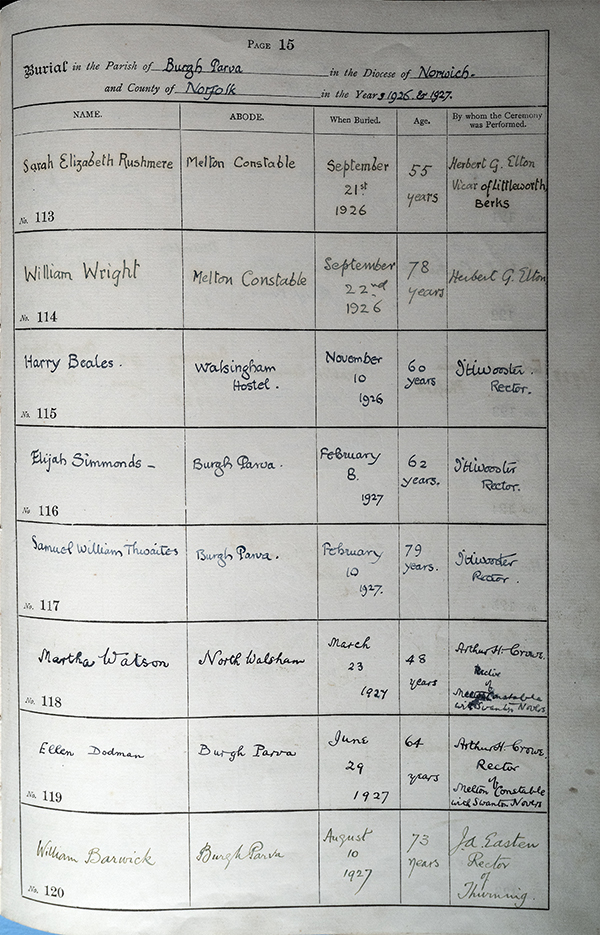 PAGE 15
Burial in the Parish of Burgh Parva in the Diocese of Norwich.
and County of Norfolk in the Years 1926 & 1927.
NAME. ABODE. When Buried. Age. By whom the Ceremony
was Performed.
Sarah Elizabeth Rushmere Melton Constable September 55 Herbert G. Elton
21st years Vicar of Littleworth
No. 113 1926 Berks
William Wright Melton Constable September 78 Herbert G. Elton
22nd years
No. 114 1926
Harry Beales. Walsingham November 60
Hostel. 10 years Rector.
No. 115 1926
Elijah Simmonds Burgh Parva. February 62
8. years. Rector.
No. 116 1927
Samuel William Thwaites Burgh Parva. February 79
10 years. Rector.
No. 117 1927.
Martha Watson North Walsham March 48 Arthur H. Crowe
23 years
of
No. 118 1927 Constable
with Swanton Novers
Ellen Dodman Burgh Parva June 64 Arthur H. Crowe
29 years Rector
of
No. 119 1927 Melton Constable
with Swanton Novers
William Barwick Burgh Parva August 73 Easten
10 years Rector
1927 of
No. 120 Thurning.